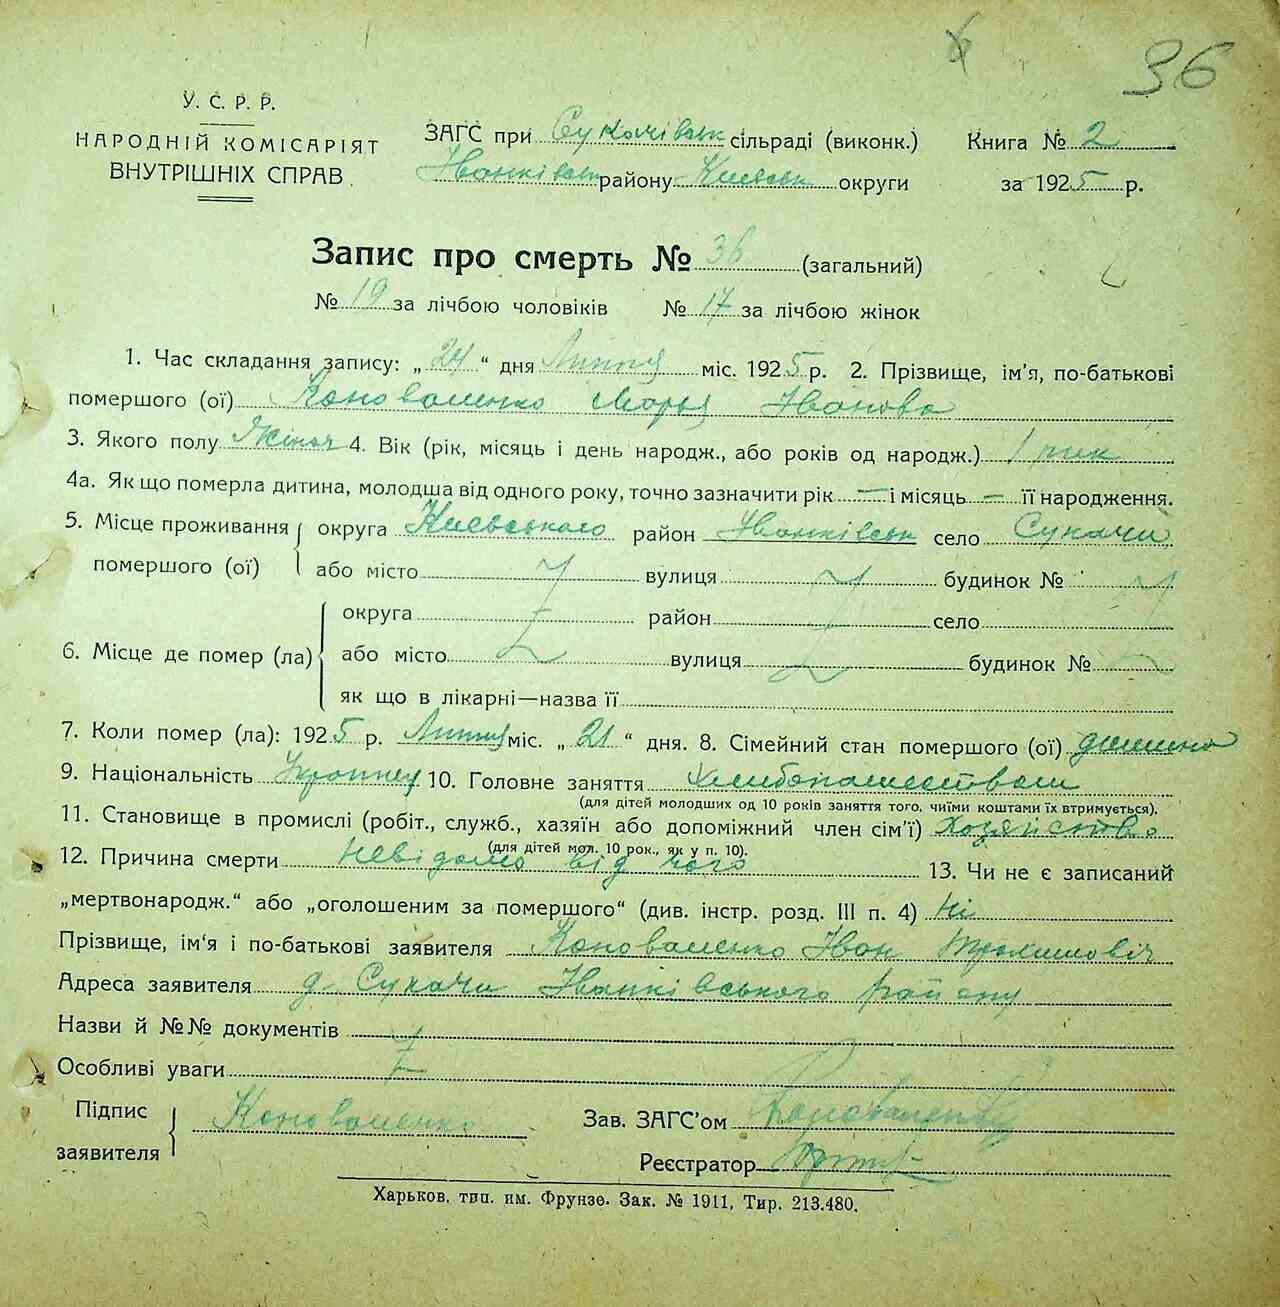 36
У. С. Р. Р.
НАРОДНІЙ КОМІСАРІЯТ
ВНУТРІШНІХ СПРАВ.
ЗАГС при Сукачівськ сільраді (виконк.)
Іванківськ району Киевськ округи
Книга № 2
за 1925 р.
Запис про смерть № 36 (загальний)
№ 19 за лічбою чоловіків № 17 за лічбою жінок
1. Час складання запису: „24“ дня Липня міс. 1925 р. 2. Прізвище, ім'я, по-батькові
помершого (ої) Коноваленко Марья Іванова
3. Якого полу Жіноч 4. Вік (рік, місяць і день народж., або років од народж.) 1 рик
4а. Як що померла дитина, молодша від одного року, точно зазначити рік — і місяць — її народження.
5. Місце проживання округа Киевського район Іванківськ село Сукачи
помершого (ої) або місто вулиця будинок №
6. Місце де помер (ла) округа район село
або місто вулиця будинок №
як що в лікарні—назва її
7. Коли помер (ла): 1925 р. Липня міс. „21“ дня. 8. Сімейний стан помершого (ої)
9. Національність 10. Головне заняття Хлибопашеством
(для дітей молодших од 10 років заняття того, чиїми коштами їх втримується).
11. Становище в промислі (робіт., служб., хазяїн або допоміжний член сім'ї) Хозяйство
(для дітей мол. 10 рок., як у п. 10).
12. Причина смерти Невідомо від чого 13. Чи не є записаний
„мертвонародж.“ або „оголошеним за помершого“ (див. інстр. розд. III п. 4) Ні
Прізвище, ім'я і по-батькові заявителя Коноваленко Іван
Адреса заявителя д. Сукачи Іванківського району
Назви й №№ документів
Особливі уваги
Підпис заявителя Коноваленко
Зав. ЗАГС'ом Коноваленко
Реєстратор
Харьков, тип. им. Фрунзе. Зак. № 1911, Тир. 213.480.